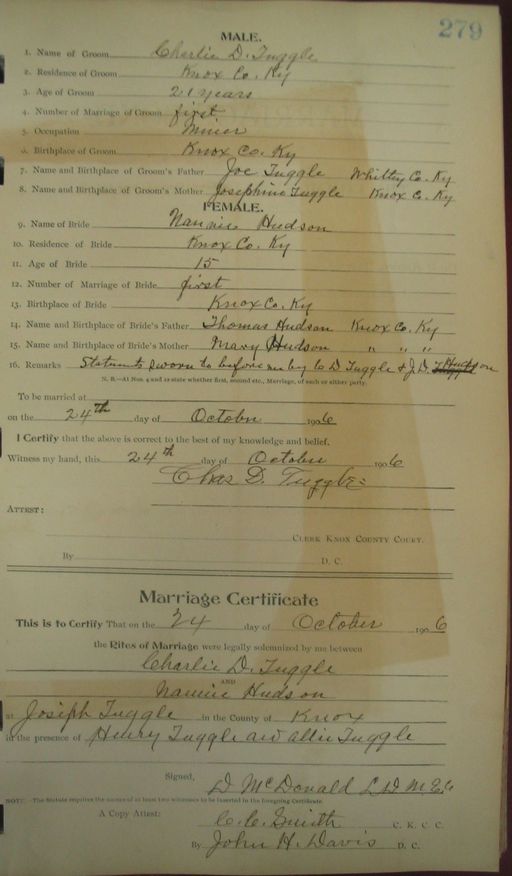 279
MALE.
1. Name of Groom Charlie D. Tuggle
2. Residence of Groom Knox Co. Ky
3. Age of Groom 21 years
4. Number of Marriage of Groom first
5. Occupation Miner
6. Birthplace of Groom Knox Co. Ky
7. Name and Birthplace of Groom's Father Joe Tuggle Whitley Co. Ky
8. Name and Birthplace of Groom's Mother Josephine Tuggle Knox Co. Ky
FEMALE.
9. Name of Bride Nannie Hudson
10. Residence of Bride Knox Co. Ky
11. Age of Bride 15
12. Number of Marriage of Bride first
13. Birthplace of Bride Knox Co. Ky
14. Name and Birthplace of Bride's Father Thomas Hudson Knox Co. Ky
15. Name and Birthplace of Bride's Mother Mary Hudson " " "
16. Remarks Statements sworn to before me by C D Tuggle & J.D.
N. B.—At Nos. 4 and 12 state whether first, second etc., Marriage, of each or either party.
To be married at
on the 24th day of October 1906
I Certify that the above is correct to the best of my knowledge and belief.
Witness my hand, this 24th day of October 1906
Chas D. Tuggle
ATTEST:
CLERK KNOX COUNTY COURT.
By D. C.
Marriage Certificate
This is to Certify That on the 24 day of October 1906
the Rites of Marriage were legally solemnized by me between
Charlie D. Tuggle
AND
Nannie Hudson
at Joseph Tuggle in the County of Knox
in the presence of Henry Tuggle and Allie Tuggle
Signed, D McDonald
NOTE:—The Statute requires the names of at least two witnesses to be inserted in the foregoing Certificate.
A Copy Attest: C. C. Smith C. K. C. C.
By John H. Davis D. C.